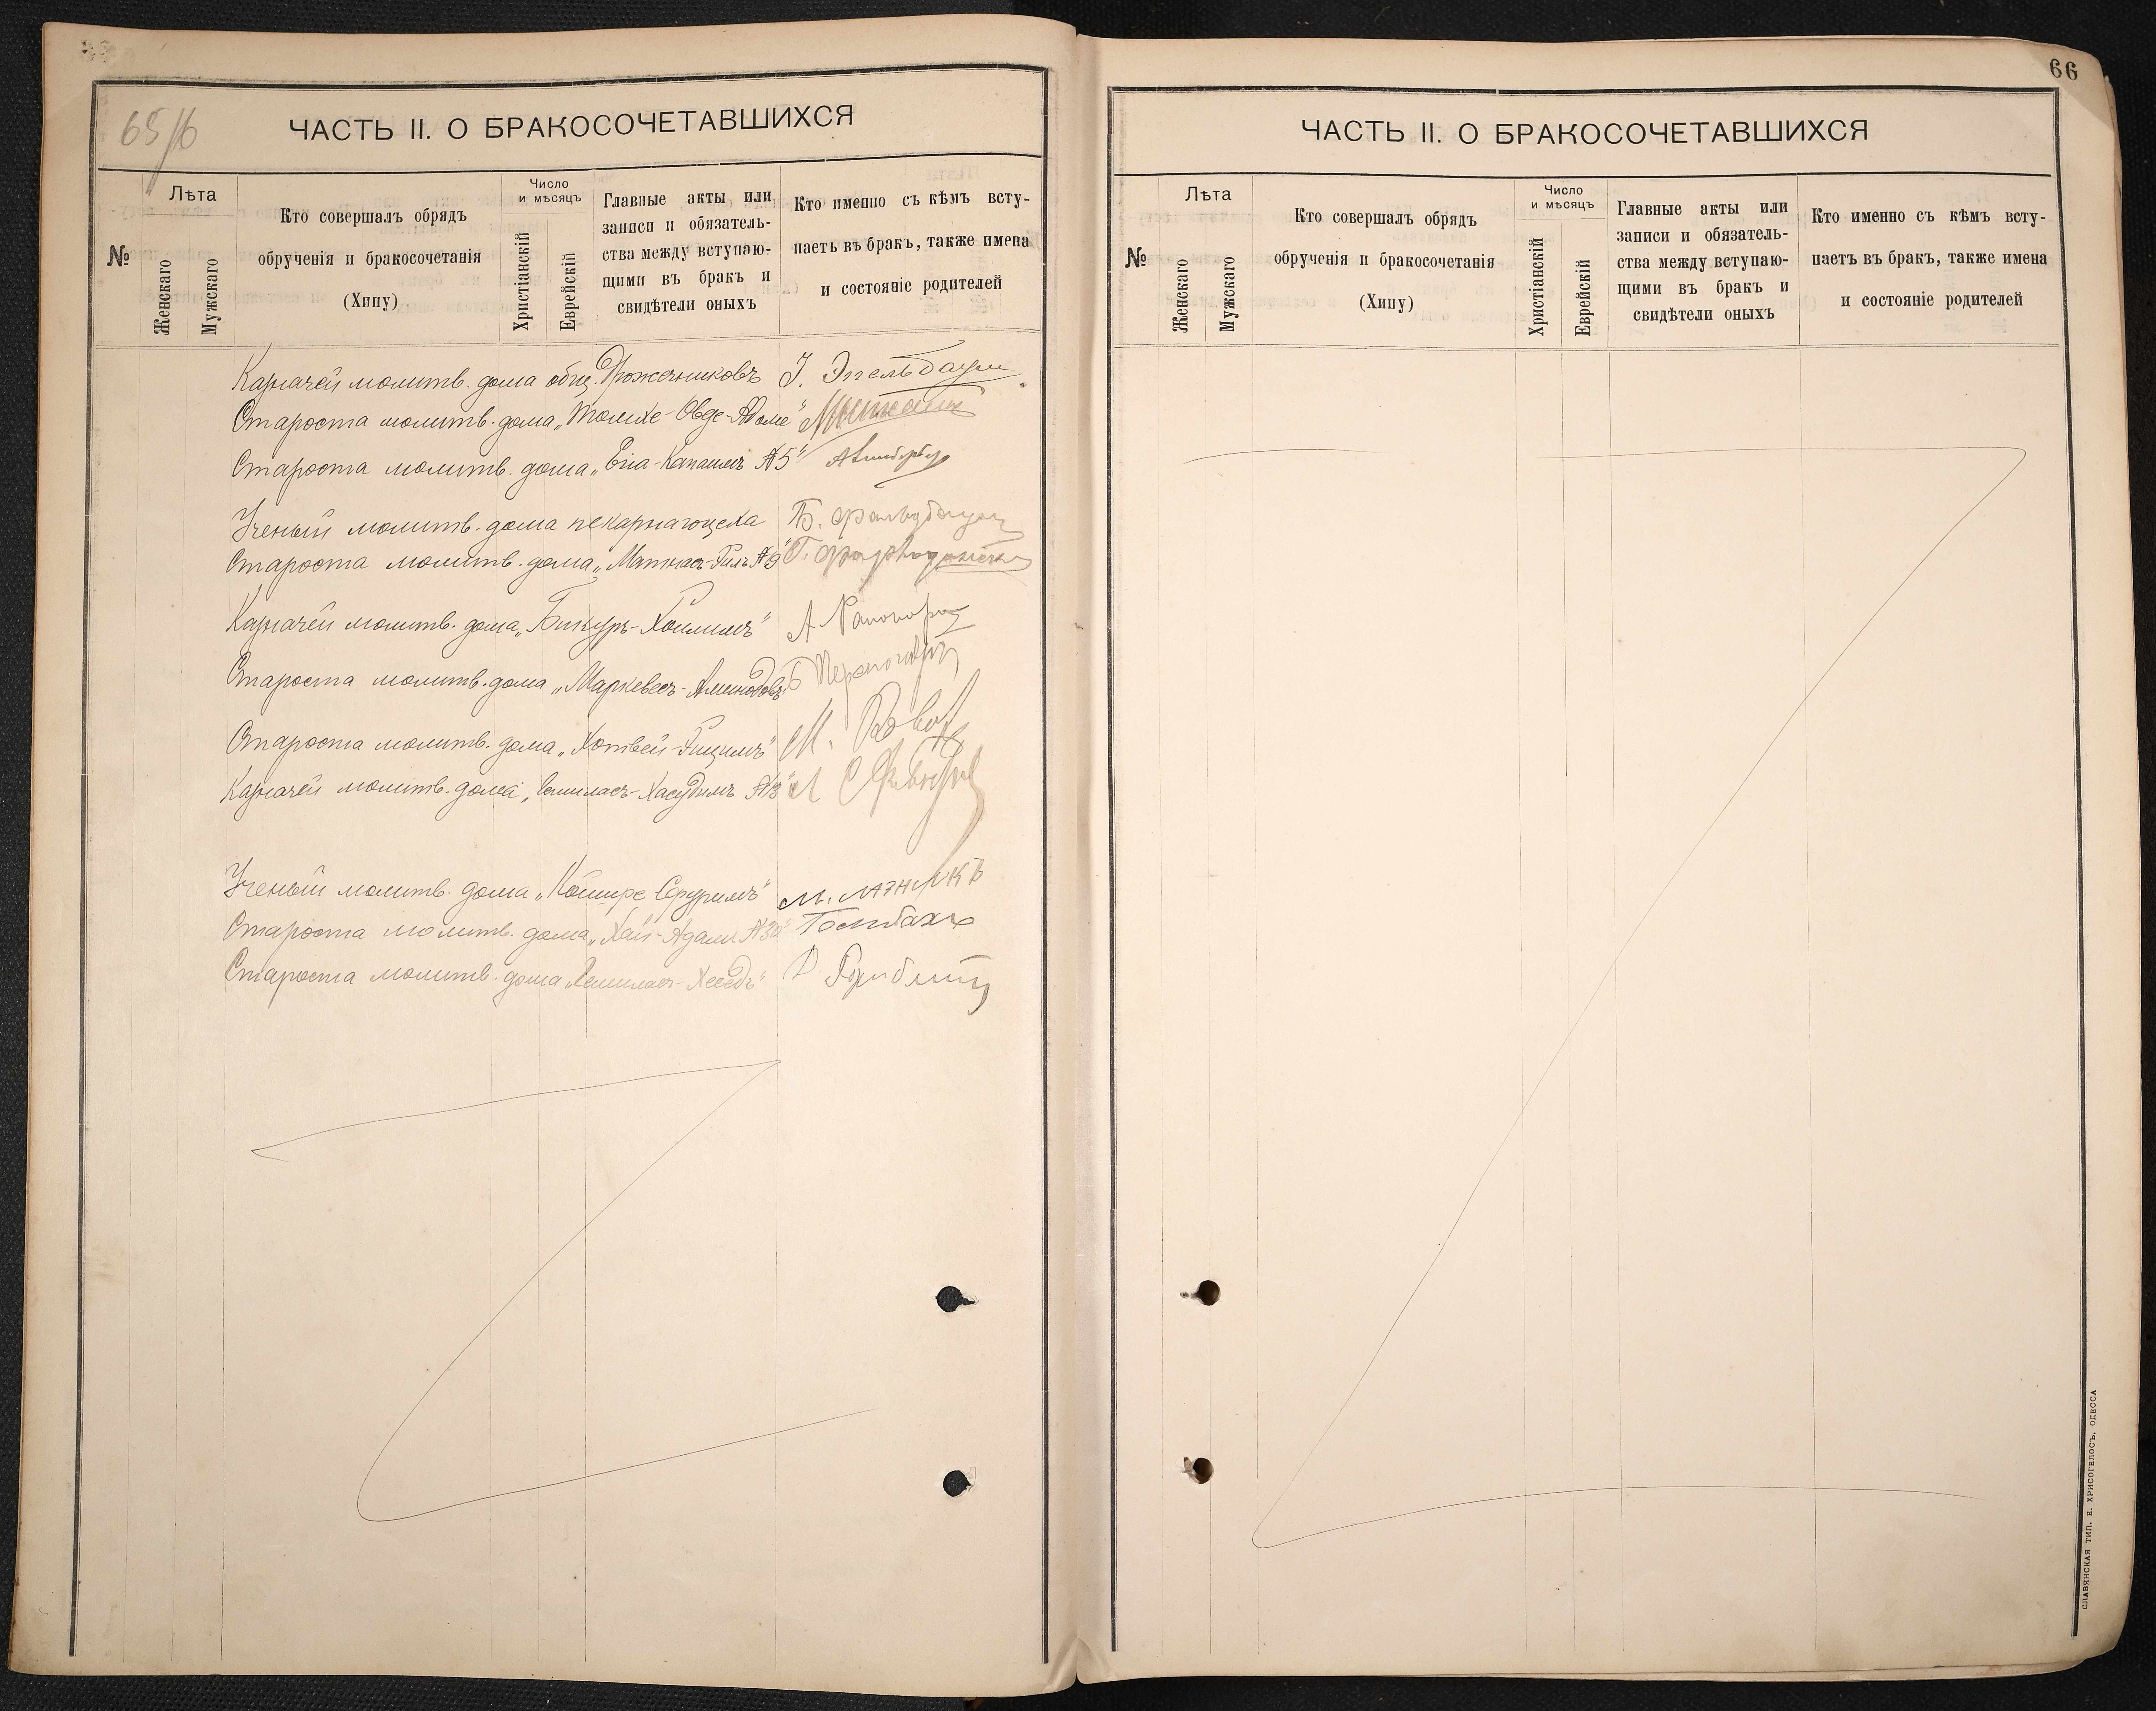 65/б
ЧАСТЬ II. О БРАКОСОЧЕТАВШИХСЯ
№
Лѣта
Женскаго
Мужскаго
Кто совершалъ обрядъ
обрученія и бракосочетанія
(Хипу)
Число
и мѣсяцъ
Христіанскій
Еврейскій
Главные акты или
записи и обязатель-
ства между вступаю-
щими въ бракъ и
свидѣтели оныхъ
Кто именно съ кѣмъ всту-
паетъ въ бракъ, также имена
и состояніе родителей
Казначей молитв. дома общ. Дрожечниковъ І. Эпельбаум
Староста молитв. дома „Толихе-Овде-Адоме“
Староста молитв. дома „Ега-Капаимъ №5“
Ученый молитв. дома пекарнаго цеха Б.
Староста молитв. дома „Матнас-Гиль №9“ Г.
Казначей молитв. дома „Бикуръ-Хоилимъ“ А Рапопорт
Староста молитв. дома „Маркевес-Аминодовъ“ Б
Староста молитв. дома „Хотвей-Гицимъ“ М.
Казначей молитв. дома „Гемиласъ-Хасудимъ №3“
Ученый молитв. дома „Койшре Сфуримъ“ М. ЛАЗНИКЪ
Староста молитв. дома „Хаи-Адамъ №30“
Староста молитв. дома „Гемилас-Хеседъ“
66
ЧАСТЬ II. О БРАКОСОЧЕТАВШИХСЯ
№
Лѣта
Женскаго
Мужскаго
Кто совершалъ обрядъ
обрученія и бракосочетанія
(Хипу)
Число
и мѣсяцъ
Христіанскій
Еврейскій
Главные акты или
записи и обязатель-
ства между вступаю-
щими въ бракъ и
свидѣтели оныхъ
Кто именно съ кѣмъ всту-
паетъ въ бракъ, также имена
и состояніе родителей
СЛАВЯНСКАЯ ТИП. Е. ХРИСОГЕЛОСЪ, ОДЕССА